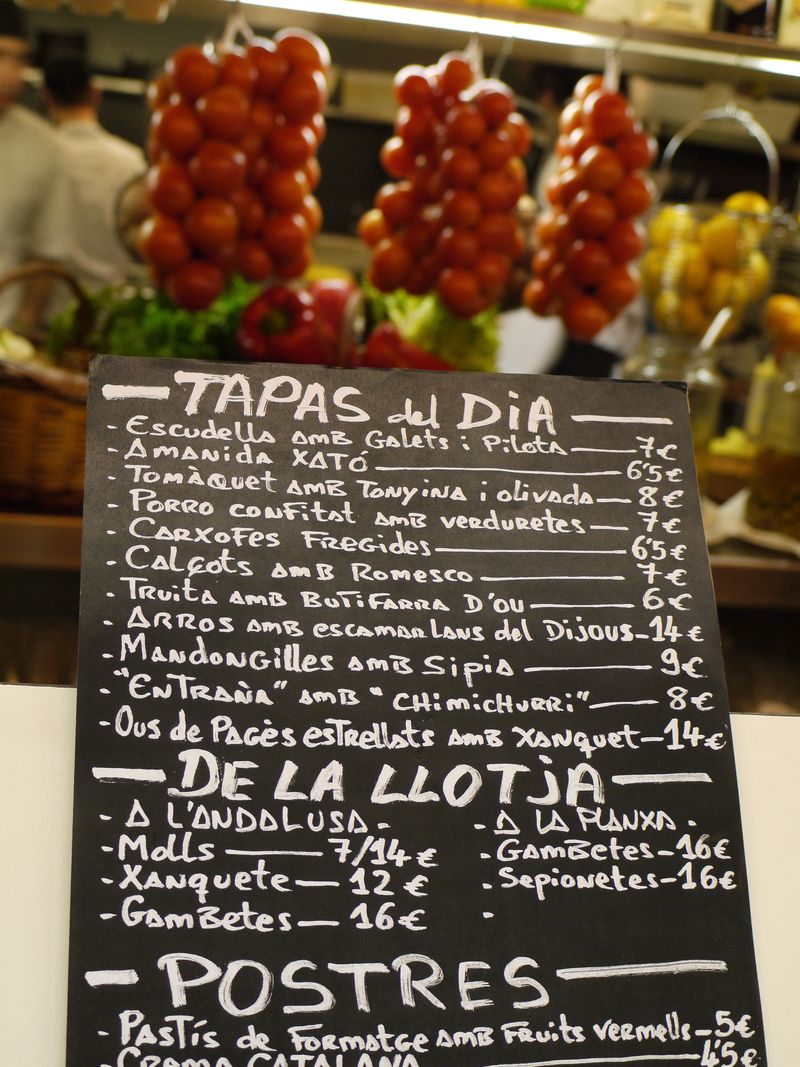 TAPAS del DiA
- Escudella amb Galets i Pilota — 7€
- Amanida XATÓ — 6'5€
- Tomàquet amb Tonyina i olivada — 8€
- Porro confitat amb verduretes — 7€
- Carxofes Fregides — 6'5€
- Calçots amb Romesco — 7€
- Truita amb Butifarra D'ou — 6€
- Arros amb escamarlans del Dijous — 14€
- Mandongilles amb Sipia — 9€
- "Entraña" amb "Chimichurri" — 8€
- Ous de Pagès estrellats amb Xanquet — 14€
DE LA LLOTjA
- A L'ANDALUSA -
- Molls — 7/14€
- Xanquete — 12€
- Gambetes — 16€
- A LA PLANXA -
- Gambetes — 16€
- Sepionetes — 16€
-
POSTRES
- Pastís de Formatge amb Fruits Vermells — 5€
- Crema CATALANA — 4'5€